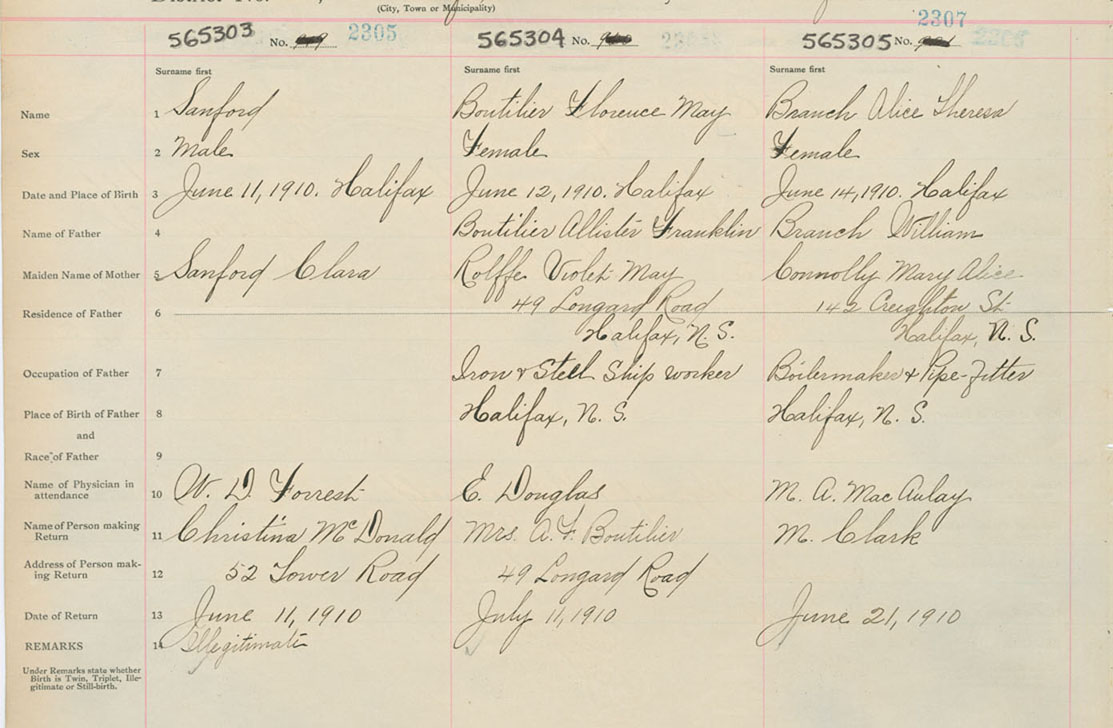 (City, Town or Municipality)
2307
565303 No. 2305 565304 No. 565305 No.
Surname first Surname first Surname first
Name 1 Sanford Boutilier Florence May Branch Alice Theresa
Sex 2 Male Female Female
Date and Place of Birth 3 June 11, 1910. Halifax June 12, 1910. Halifax June 14, 1910. Halifax
Name of Father 4 Boutilier Allister Franklin Branch William
Maiden Name of Mother 5 Sanford Clara Rolffe Violet May Connolly Mary Alice
Residence of Father 6 49 Longard Road 142 Creighton St
Halifax, N. S. Halifax, N. S.
Occupation of Father 7 Iron & Steel Ship worker Boilermaker & Pipe-Fitter
Place of Birth of Father 8 Halifax, N. S. Halifax, N. S.
and
Race of Father 9
Name of Physician in
attendance 10 W. D. Forrest E. Douglas M. A. MacAulay
Name of Person making
Return 11 Christina McDonald Mrs. A. F. Boutilier M. Clark
Address of Person mak-
ing Return 12 52 Tower Road 49 Longard Road
Date of Return 13 June 11, 1910 July 11, 1910 June 21, 1910
REMARKS 14 Illegitimate
Under Remarks state whether
Birth is Twin, Triplet, Ille-
gitimate or Still-birth.